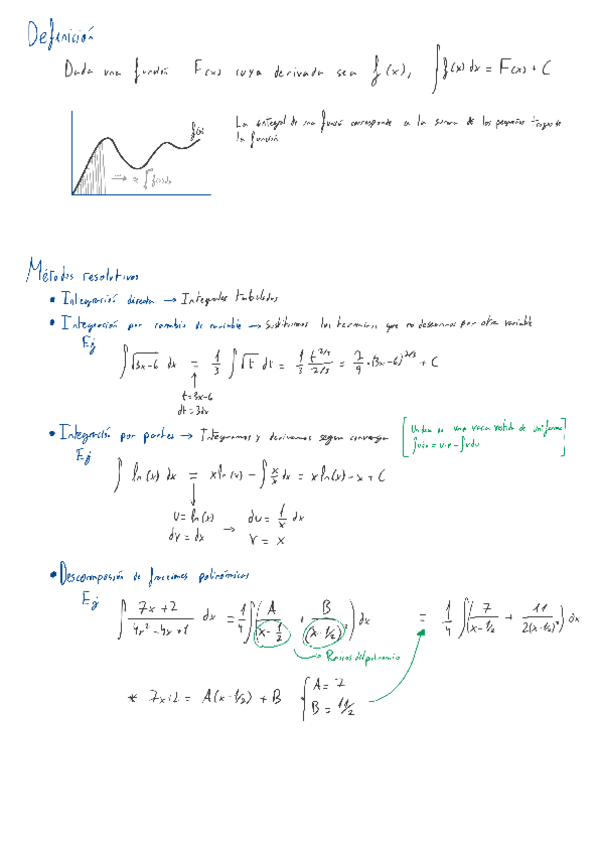 Definición
Dada una función F(x) cuya derivada sea f(x), ∫f(x) dx = F(x) + C
La integral de una función corresponde a la suma de los pequeños de
la función
f(x)
→ ≈ ∫f(x)dx
Métodos resolutivos
• Integración directa → Integrales tabuladas
• Integración por cambio de variable → Sustituimos los terminos que no deseamos por otra variable
Ej
∫√(3x-6) dx = 1/3 ∫√t dt = 1/3 t^(2/3)/(2/3) = 2/9 · (3x-6)^(2/3) + C
t = 3x-6
dt = 3dx
• Integración por partes → Integramos y derivamos segun convenga [Un dia vi una vaca vestida de uniforme
∫udv = u·v - ∫vdu]
Ej
∫ ln(x) dx = x ln(x) - ∫ x/x dx = x ln(x) - x + C
u = ln(x) du = 1/x dx
dv = dx → v = x
• Descomposición de fracciones polinómicas
Ej
∫ (7x+2)/(4x² - 4x + 1) dx = 1/4 ∫(A/(x - 1/2) + B/(x - 1/2)²) dx = 1/4 ∫(7/(x - 1/2) + 11/(2(x - 1/2)²)) dx
→ Raices del polinomio
* 7x+2 = A(x - 1/2) + B { A = 7
B = 11/2